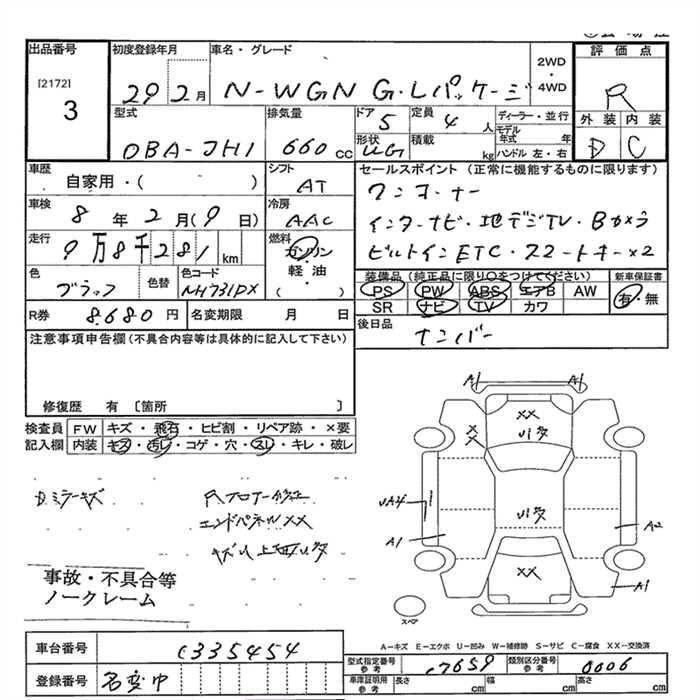 出品番号 初度登録年月 車名・グレード 2WD・4WD 評価点
[2172]
3
29 2月 N-WGN G・Lパッケージ R
型式 排気量 ドア 定員 ディーラー・並行 外装 内装
DBA-JH1 660cc 5 4人 モデル年式 年 D C
形状 積載 kg ハンドル 左・右
車歴 シフト セールスポイント (正常に機能するものに限ります)
自家用・( ) AT ワンオーナー
車検 冷房
8年2月(9日) AAC インターナビ・地デジTV・Bカメラ
走行 燃料
9万8千281km ガソリン ビルトインETC・スマートキー×2
軽・油
( )
色 色替 色コード 装備品 (純正品に限り○をつけてください) 新車保証書
ブラック NH731PX PS PW ABS エアB AW 有・無
SR ナビ TV カワ
R券 8,680円 名変期限 月 日 後日品 ナンバー
注意事項申告欄(不具合内容等は具体的に記入して下さい)
修復歴 有 〔箇所 〕
検査員 FW キズ・飛石・ヒビ割・リペア跡・×要
記入欄 内装 キズ・汚レ・コゲ・穴・スレ・キレ・破レ
A1 A1
XX
XX
D.ミラーキズ
エンドパネルXX
A1 A2
XX
A1
スペア
事故・不具合等
ノークレーム
A-キズ E-エクボ U-凹み W-補修跡 S-サビ C-腐食 XX-交換済
車台番号 C335454 型式指定番号 参考 17659 類別区分番号 参考 0006
登録番号 名変中 車庫証明用 参考 長さ cm 幅 cm 高さ cm